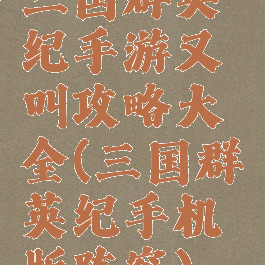 三国群英
纪手游又
叫攻略大
全(三国群
英纪手机
版阵容)